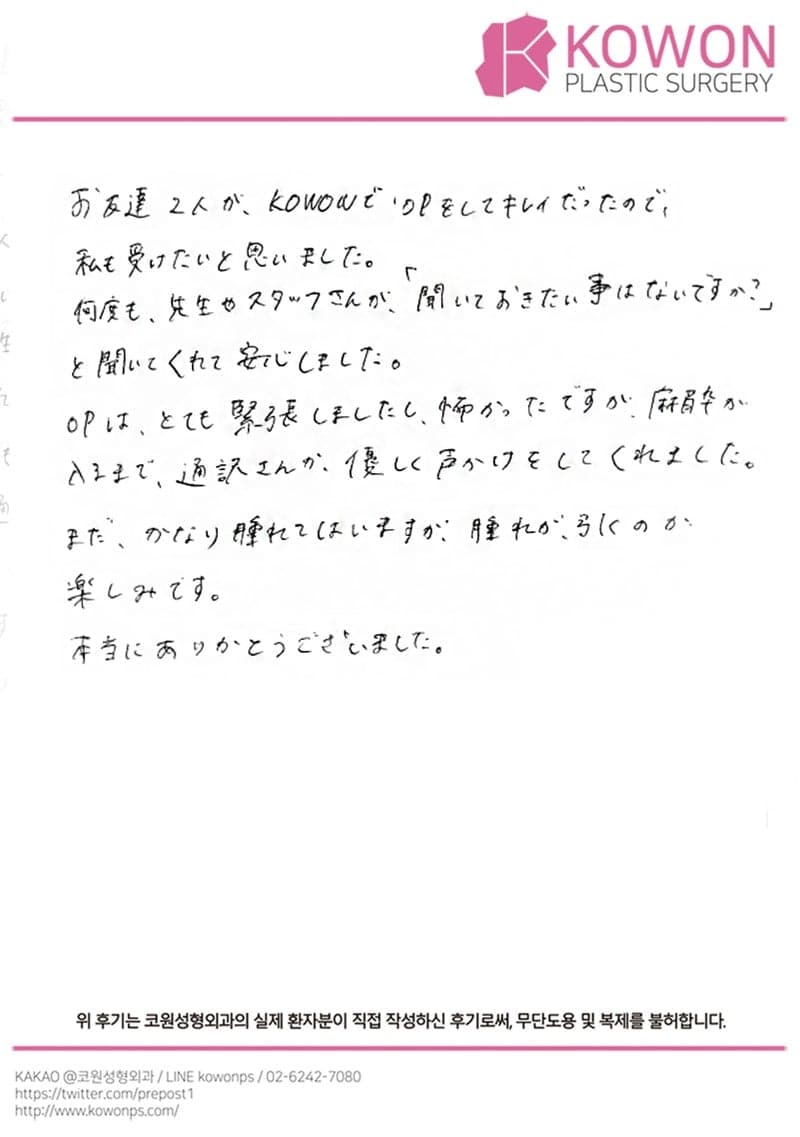 KOWON
PLASTIC SURGERY
お友達 2人が、KOWONで OPをしてキレイだったので、
私も受けたいと思いました。
何度も、先生やスタッフさんが、「聞いておきたい事はないですか?」
と聞いてくれて安心しました。
OPは、とても緊張しましたし、怖かったですが、麻酔が
入るまで、通訳さんが、優しく声かけをしてくれました。
まだ、かなり腫れてはいますが、腫れが、引くのが
楽しみです。
本当にありがとうございました。
위 후기는 코원성형외과의 실제 환자분이 직접 작성하신 후기로써, 무단도용 및 복제를 불허합니다.
KAKAO @코원성형외과 / LINE kowonps / 02-6242-7080
https://twitter.com/prepost1
http://www.kowonps.com/